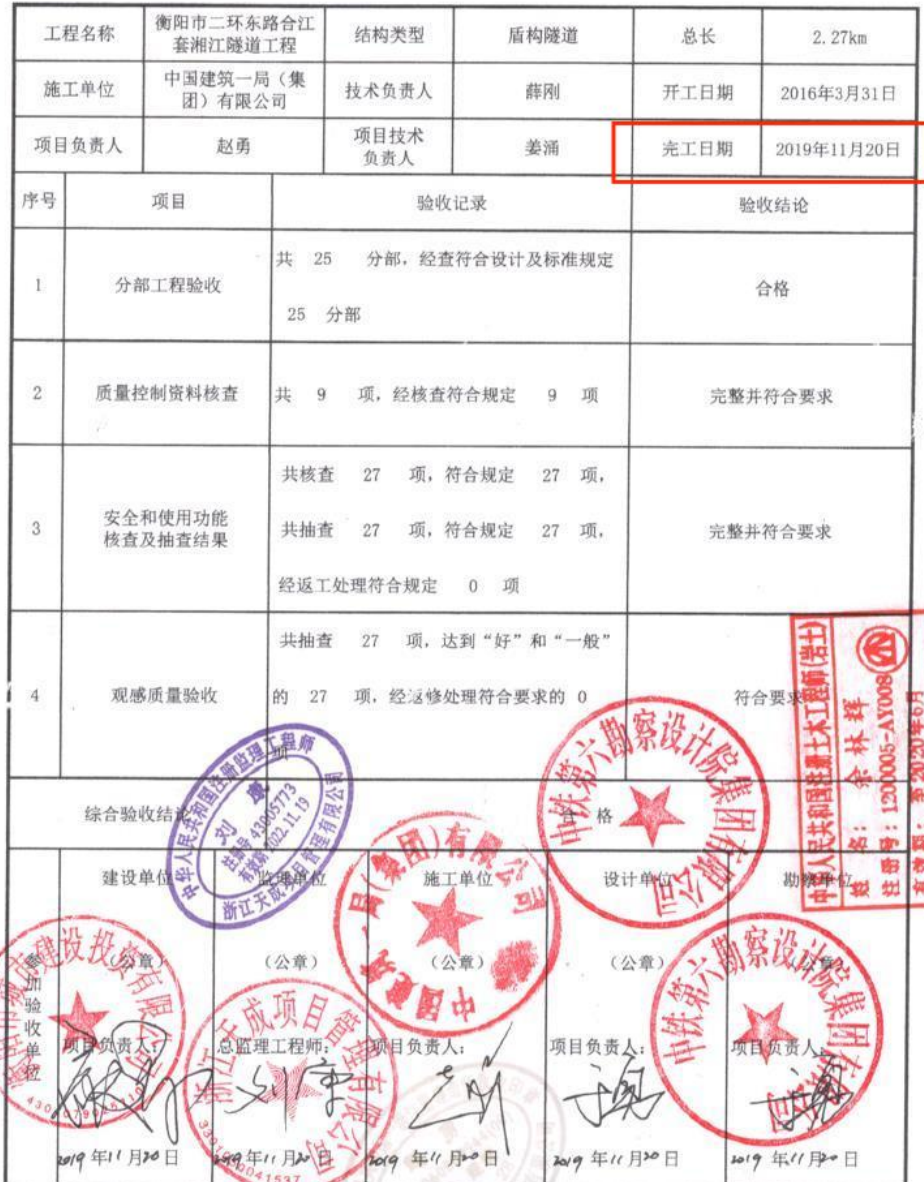 工程名称 衡阳市二环东路合江套湘江隧道工程 结构类型 盾构隧道 总长 2.27km
施工单位 中国建筑一局（集团）有限公司 技术负责人 薛刚 开工日期 2016年3月31日
项目负责人 赵勇 项目技术负责人 姜涌 完工日期 2019年11月20日
序号 项目 验收记录 验收结论
1 分部工程验收 共 25 分部，经查符合设计及标准规定
25 分部 合格
2 质量控制资料核查 共 9 项，经核查符合规定 9 项 完整并符合要求
3 安全和使用功能核查及抽查结果 共核查 27 项，符合规定 27 项，
共抽查 27 项，符合规定 27 项，
经返工处理符合规定 0 项 完整并符合要求
4 观感质量验收 共抽查 27 项，达到“好”和“一般”
的 27 项，经返修处理符合要求的 0
项 符合要求
综合验收结论 合格
参加验收单位
建设单位 监理单位 施工单位 设计单位 勘察单位
（公章） （公章） （公章） （公章） （公章）
项目负责人： 总监理工程师： 项目负责人： 项目负责人： 项目负责人：
2019年11月20日 2019年11月20日 2019年11月20日 2019年11月20日 2019年11月20日
中华人民共和国注册监理工程师
刘
注册号 43005773
有效期 2022.11.19
浙江天成项目管理有限公司
中国建筑一局(集团)有限公司
中铁第六勘察设计院集团有限公司
中华人民共和国注册土木工程师(岩土)
姓名：余林辉
注册号：1200005-AY008
至2020年6月
建设投资有限公司
浙江天成项目管理有限公司
中铁第六勘察设计院集团有限公司